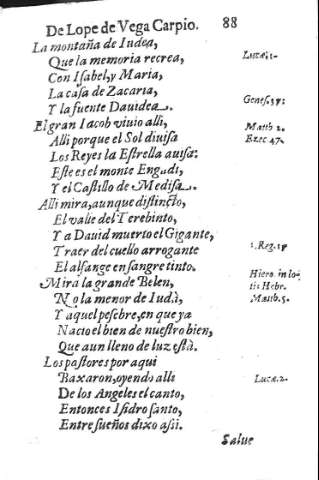 De Lope de Vega Carpio. 88
La montaña de Iudea,
Que la memoria recrea,
Con Isabel, y Maria,
La casa de Zacaria,
Y la fuente Dauidea.
El gran Iacob viuio alli,
Alli porque el Sol diuisa
Los Reyes la Estrella auisa:
Este es el monte Engadi,
Y el Castillo de Medisa.
Alli mira, aunque distincto,
El valle del Terebinto,
Y a Dauid muerto el Gigante,
Traer del cuello arrogante
El alfange en sangre tinto.
Mira la grande Belen,
No la menor de Iudà,
Y aquel pesebre, en que ya
Nacio el bien de nuestro bien,
Que aun lleno de luz està.
Los pastores por aqui
Baxaron, oyendo alli
De los Angeles el canto,
Entonces Isidro santo,
Entre sueños dixo assi.
Salue
Lucæ. 1.
Genes. 37.
Matth 2.
Ezec 47.
1. Reg. 17
Hiero. in lo-
tis Hebr.
Matth. 5.
Lucæ. 2.